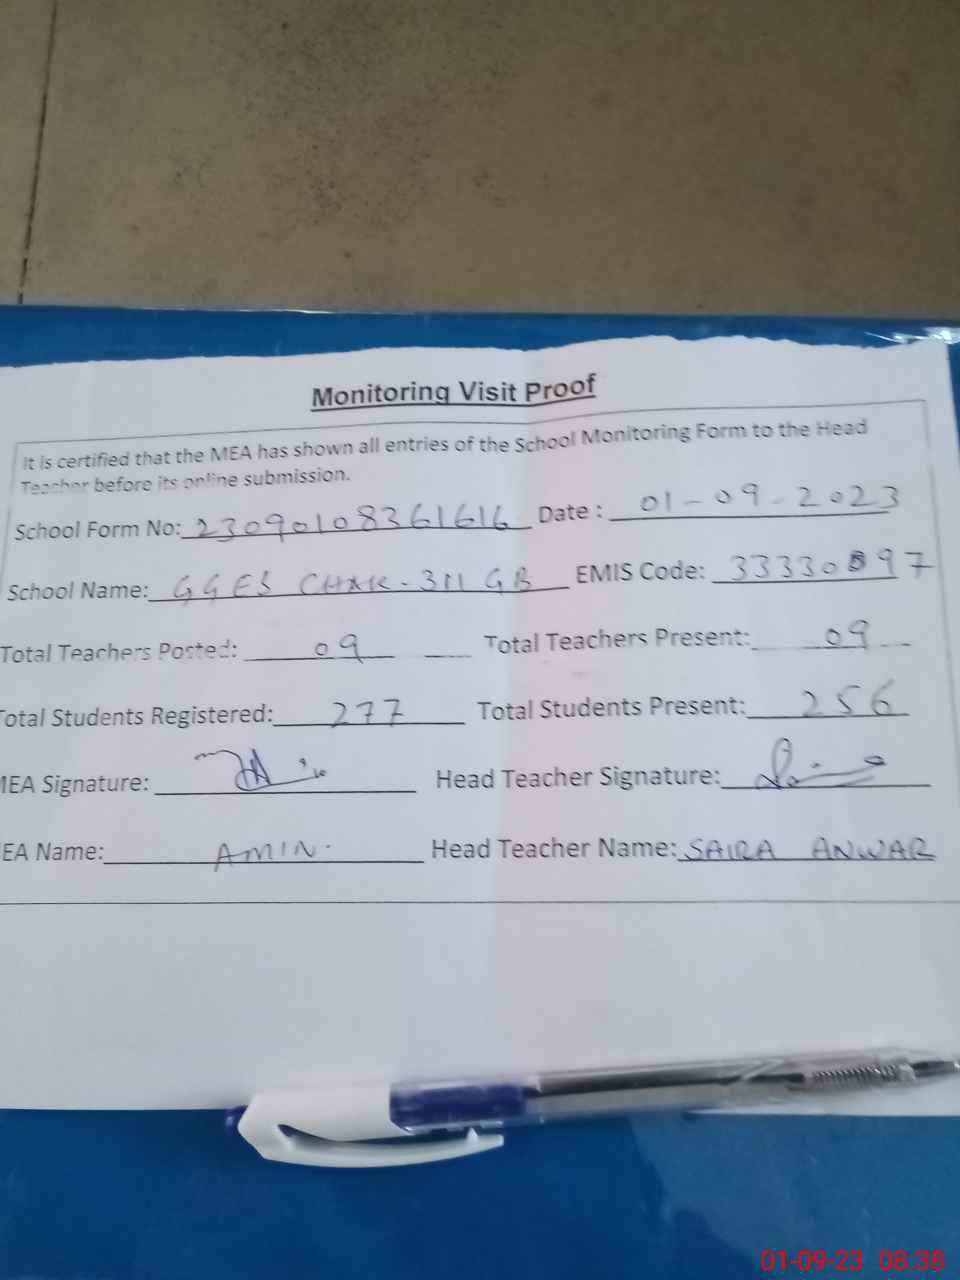 Monitoring Visit Proof
It is certified that the MEA has shown all entries of the School Monitoring Form to the Head
Teacher before its online submission.
School Form No: 23090108361616 Date : 01-09-2023
School Name: GGES CHAK-311 GB EMIS Code: 33330897
Total Teachers Posted: 09 Total Teachers Present: 09
Total Students Registered: 277 Total Students Present: 256
MEA Signature: Head Teacher Signature:
EA Name: AMIN. Head Teacher Name: SAIRA ANWAR
01-09-23 08.38